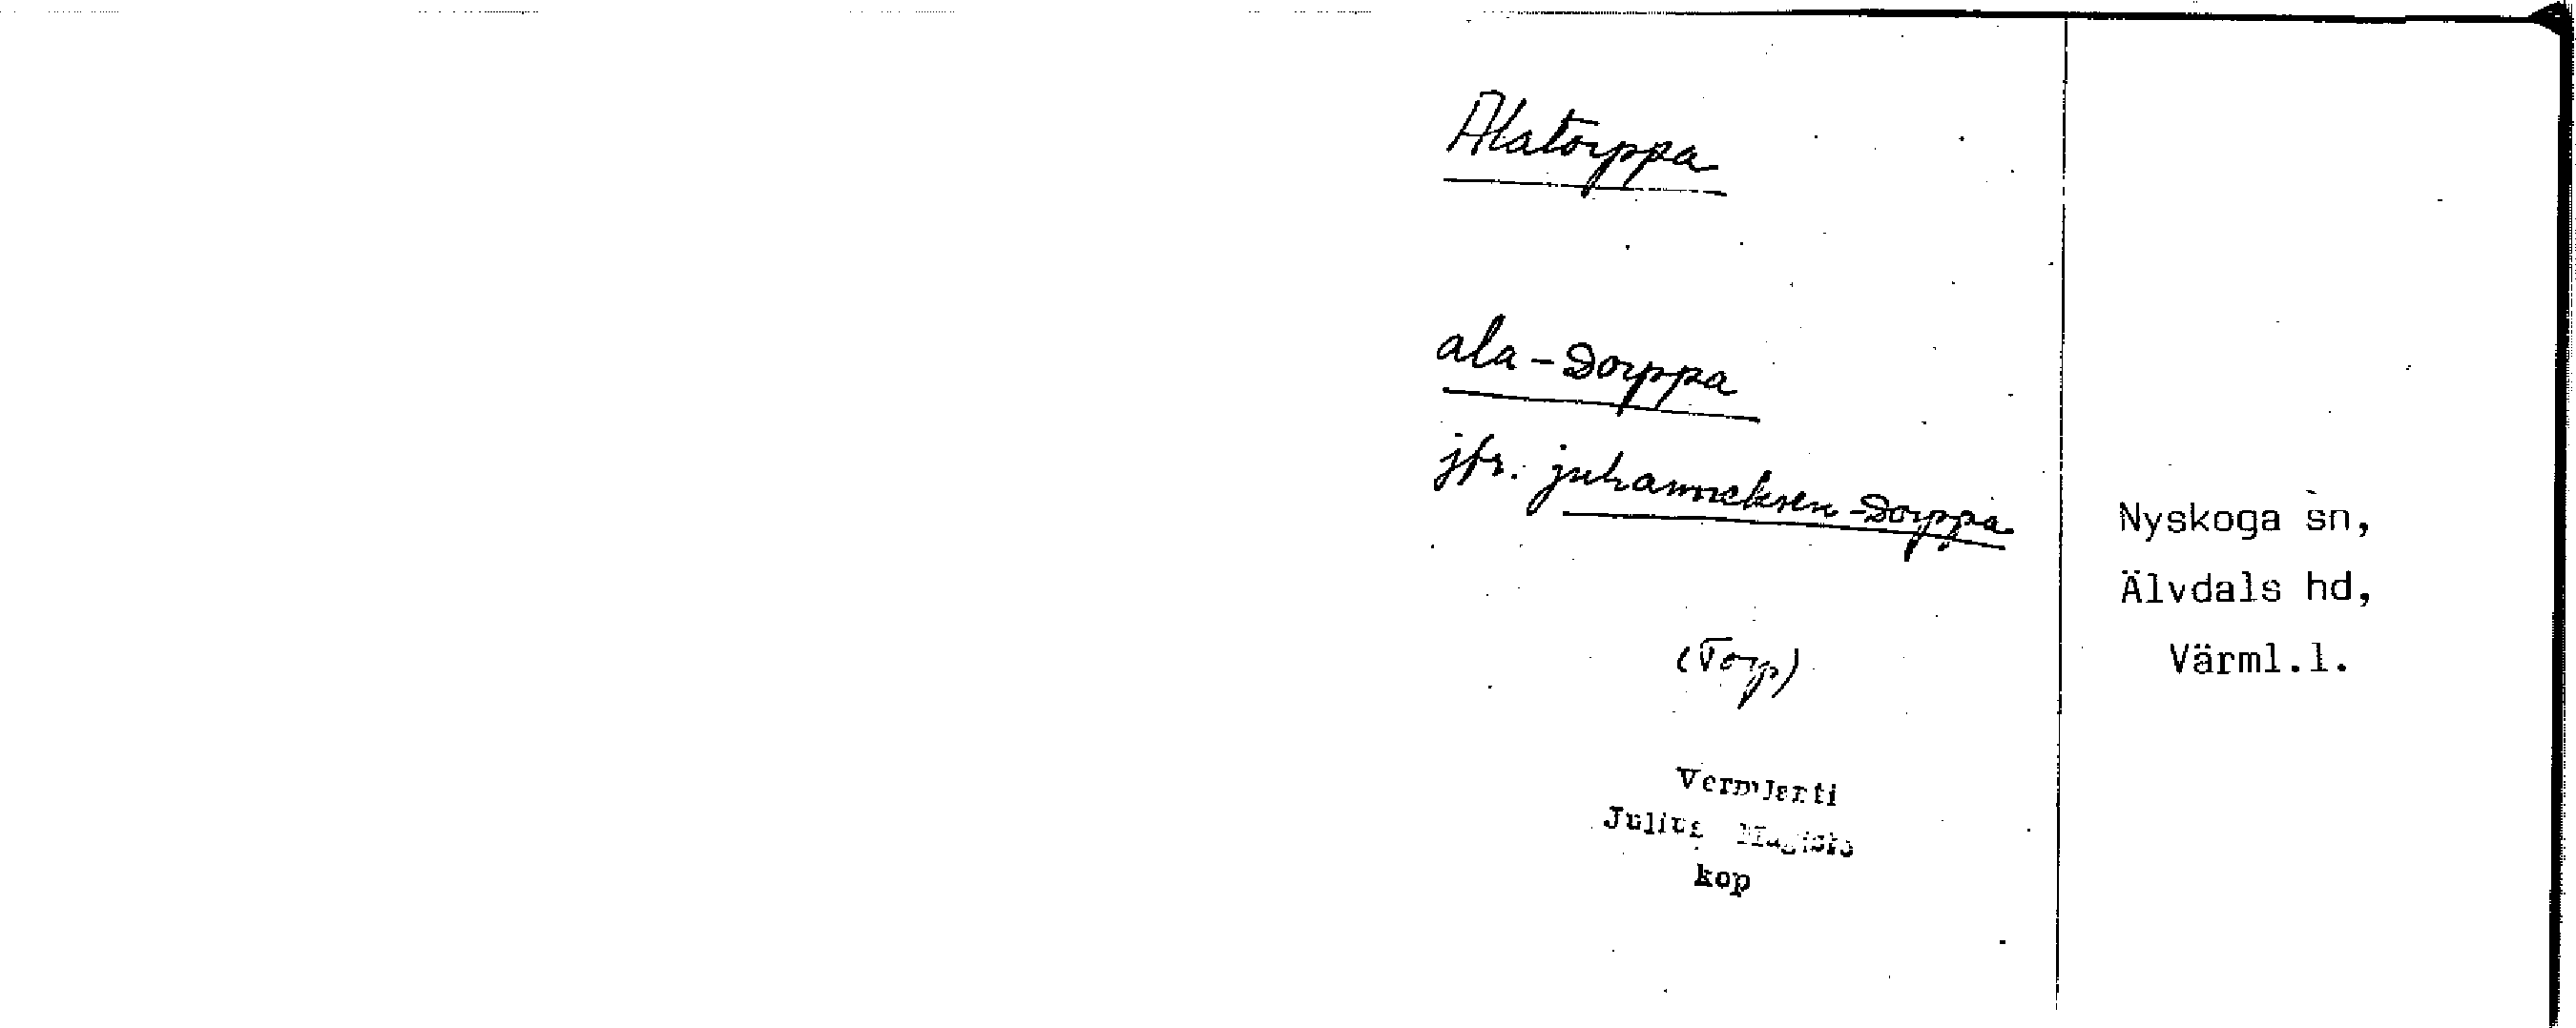 Alatorppa
ala-Dorppa
jfr. juhanneksen-Dorppa
(Torp)
Julius
kop
Nyskoga sn,
Älvdals hd,
Värml.l.